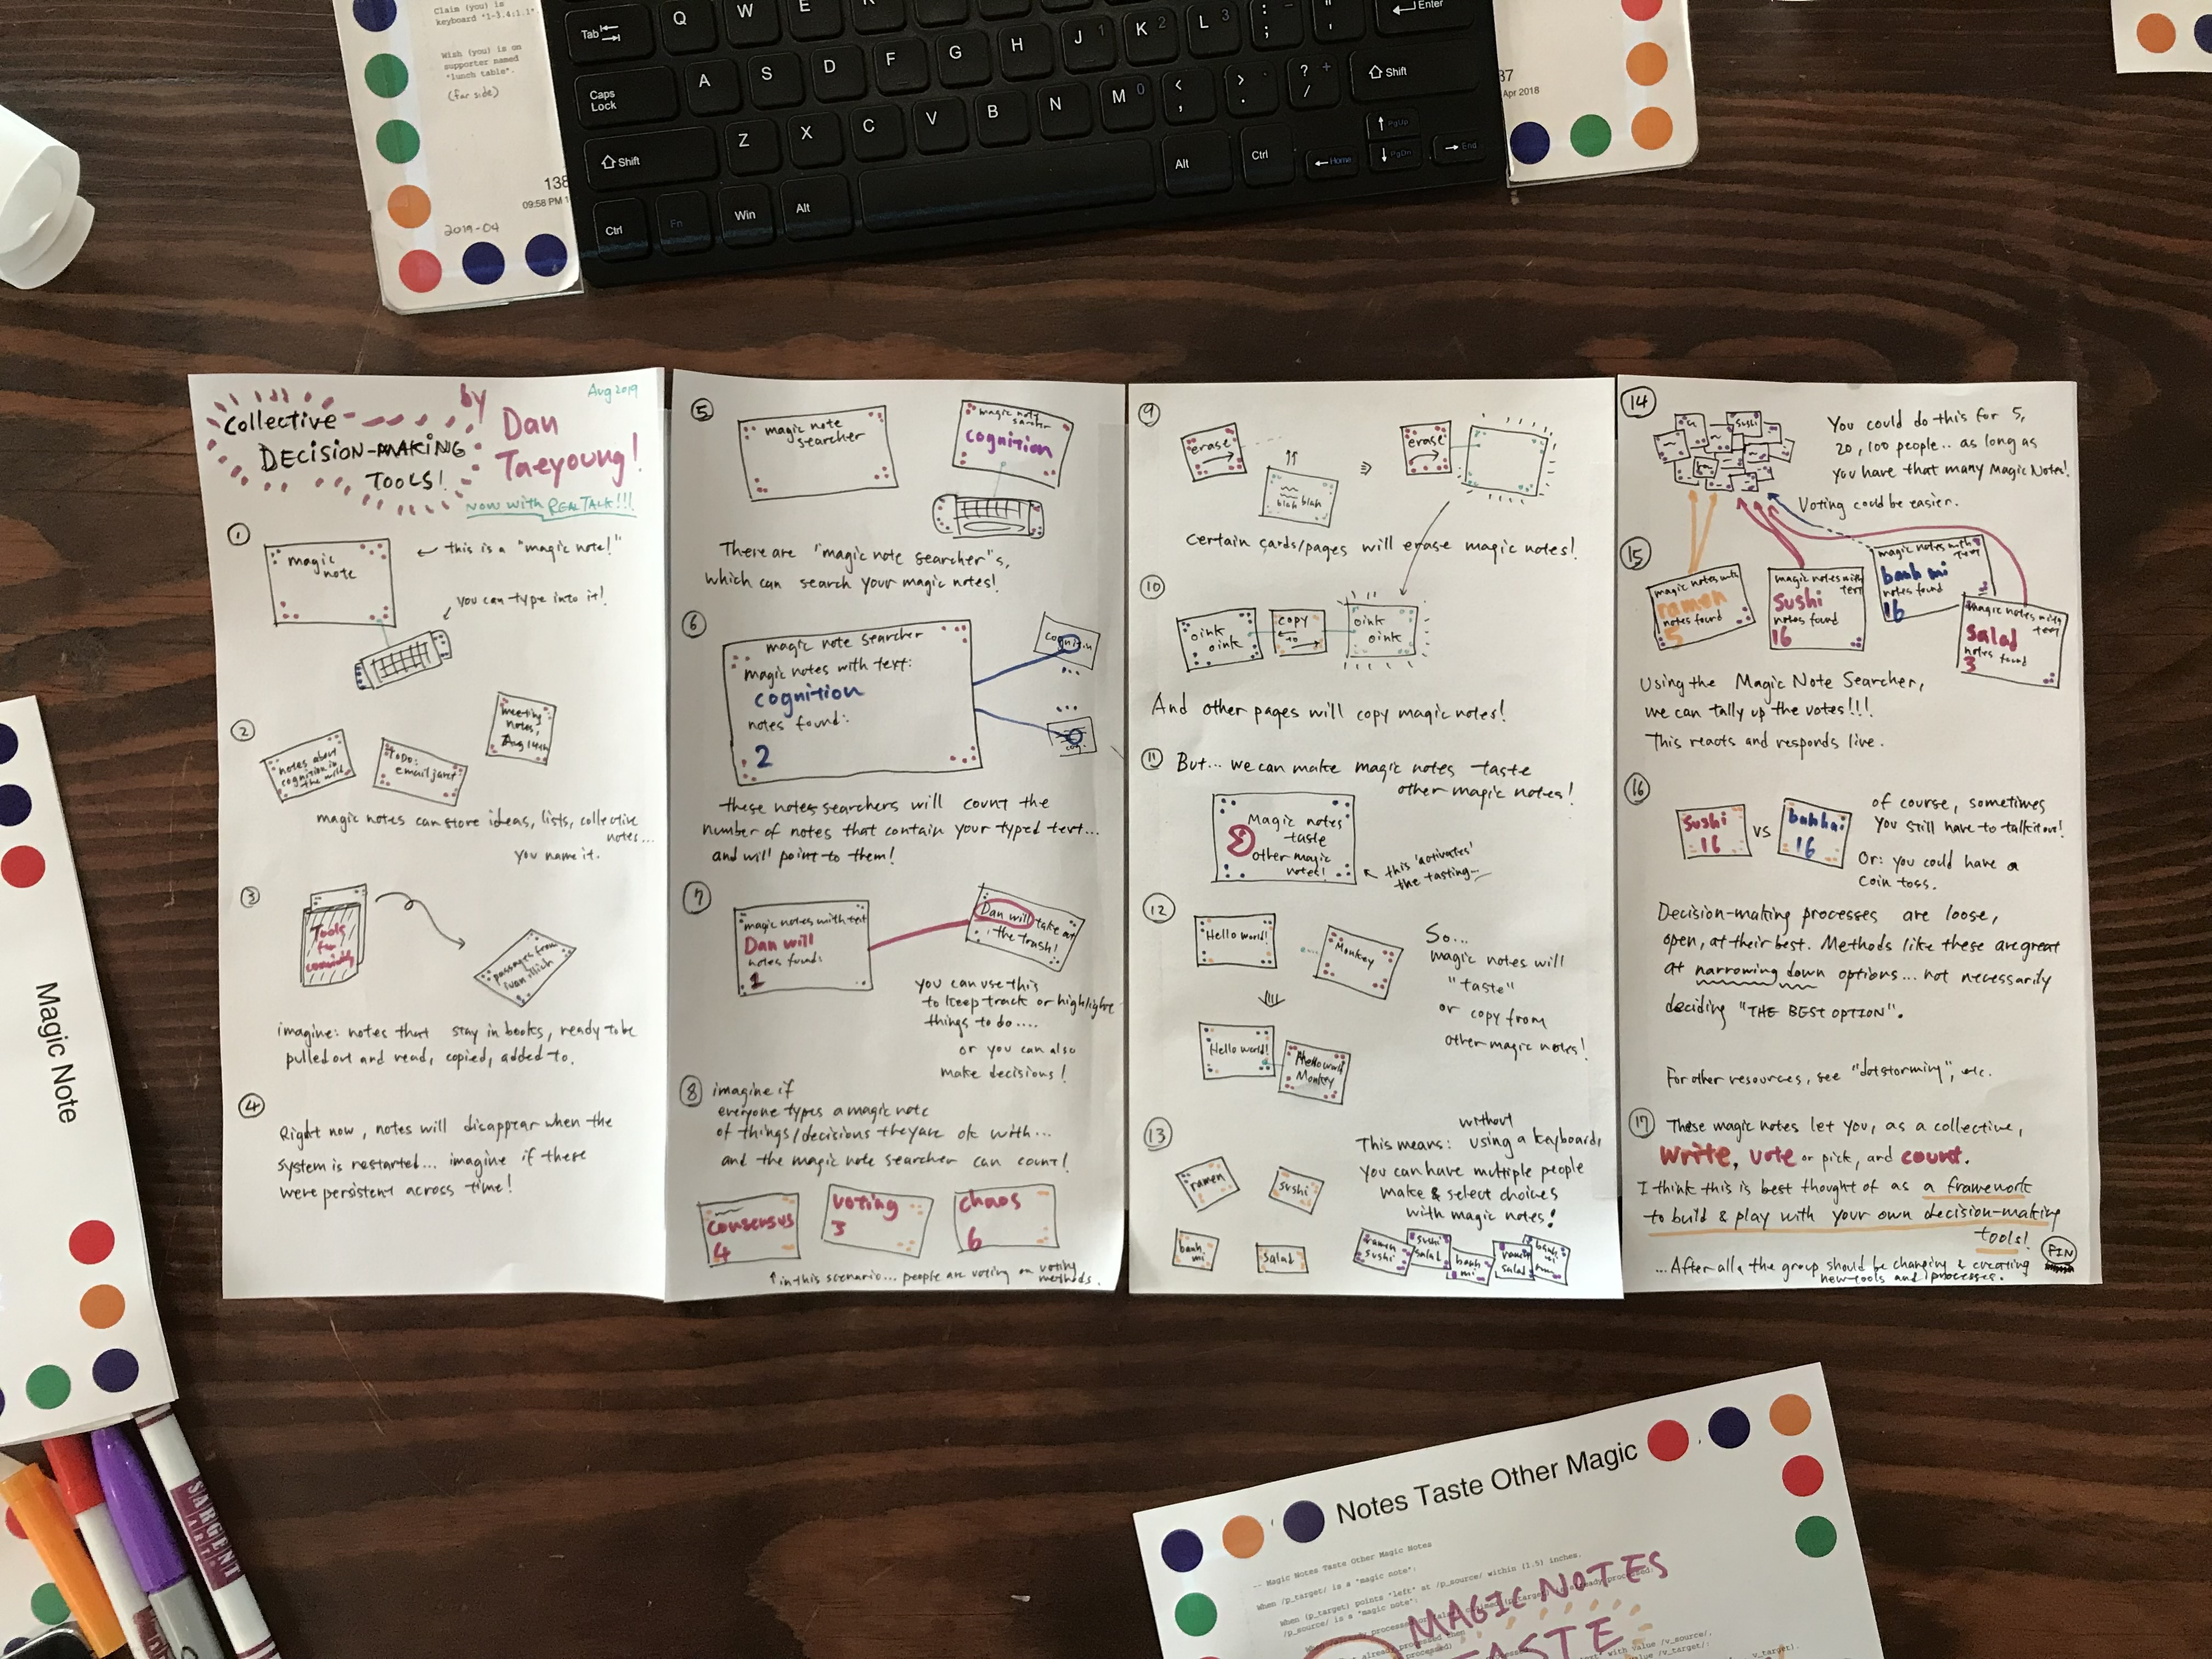 Claim (you) is
keyboard "1-3.4:1.1".
Wish (you) is on
supporter named
"lunch table".
(far side)
138
09:58 PM
2019-04
Tab
Q W E R
Enter
Caps
Lock
A S D F G H J 1 K 2 L 3 : ; " '
Shift
Z X C V B N M 0 < , > . ? / +
Shift
Ctrl Fn Win Alt
Alt Ctrl Home PgUp PgDn End
37
Apr 2018
Collective
DECISION-MAKING
TOOLS!
by
Dan
Taeyoung!
Aug 2019
NOW WITH REALTALK!!!
1
magic
note
← this is a "magic note!"
you can type into it!
2
notes about
cognition in
the wild
TODO:
email janet
meeting
notes,
Aug 14th
magic notes can store ideas, lists, collective
notes...
you name it.
3
Tools
for
conviviality
passages from
ivan illich
imagine: notes that stay in books, ready to be
pulled out and read, copied, added to.
4
Right now, notes will disappear when the
system is restarted... imagine if these
were persistent across time!
5
magic note
searcher
magic note
searcher
cognition
There are "magic note searcher"s,
which can search your magic notes!
6
magic note searcher
magic notes with text:
cognition
notes found:
2
cognition
...
...
these notes searchers will count the
number of notes that contain your typed text...
and will point to them!
7
magic notes with text
Dan will
notes found:
1
Dan will take out
the trash!
you can use this
to keep track or highlight
things to do....
or you can also
make decisions!
8
imagine if
everyone types a magic note
of things/decisions they are ok with...
and the magic note searcher can count!
consensus
4
voting
3
chaos
6
↑ in this scenario... people are voting on voting
methods.
9
erase
blah blah
erase
Certain cards/pages will erase magic notes!
10
oink
oink
copy
to
oink
oink
And other pages will copy magic notes!
11
But... we can make magic notes taste
other magic notes!
Magic notes
taste
other magic
notes!
← this 'activates'
the tasting
12
Hello world!
Monkey
Hello world!
Hello world
Monkey
So...
magic notes will
"taste"
or copy from
other magic notes!
13
without
This means: using a keyboard,
you can have multiple people
make & select choices
with magic notes!
ramen
sushi
banh
mi
salad
ramen
sushi
sushi
salad
banh
mi
ramen
salad
banh
mi
14
sushi
You could do this for 5,
20, 100 people.. as long as
you have that many Magic Notes!
Voting could be easier.
15
magic notes with
ramen
notes found
5
magic notes with
text
Sushi
notes found
16
magic notes with
text
banh mi
notes found
16
magic notes with
text
salad
notes found
3
Using the Magic Note Searcher,
we can tally up the votes!!!
This reacts and responds live.
16
Sushi
16
VS
16
of course, sometimes
you still have to talk it out!
Or: you could have a
coin toss.
Decision-making processes are loose,
open, at their best. Methods like these are great
at narrowing down options... not necessarily
deciding "THE BEST OPTION".
For other resources, see "dotstorming", etc.
17
These magic notes let you, as a collective,
write, vote or pick, and count.
I think this is best thought of as a framework
to build & play with your own decision-making
tools!
FIN
...After all, the group should be changing & creating
new tools and processes.
Magic Note
SARGENT
ART
Notes Taste Other Magic
-- Magic Notes Taste Other Magic Notes
When /p_target/ is a "magic note":
When (p_target) points "left" at /p_source/ within (1.5) inches.
/p_source/ is a "magic note":
MAGIC NOTES
TASTE